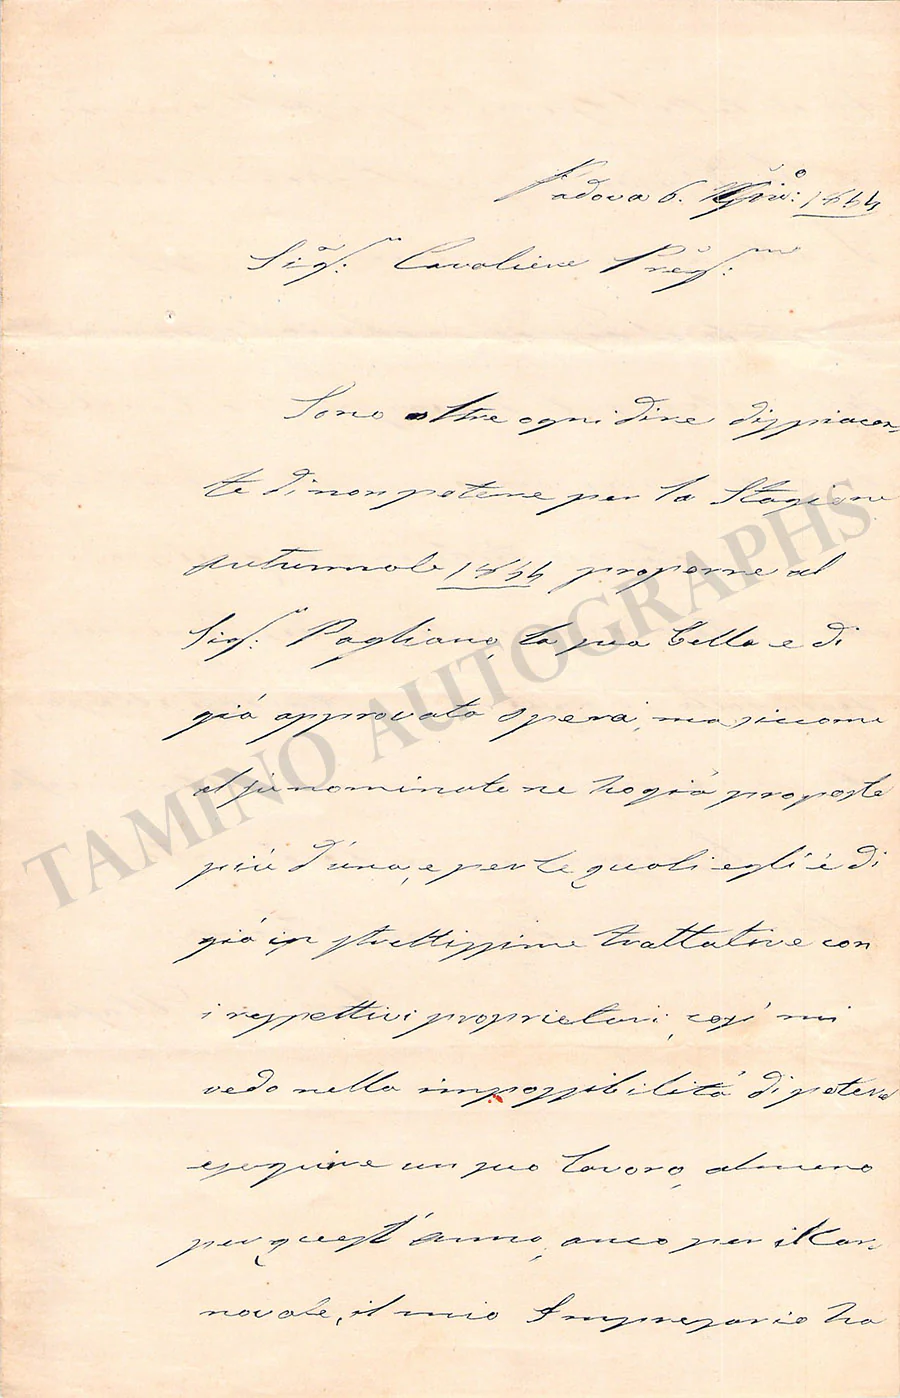 Padova 6. 1864
Sigr: Cavaliere Pregmo:
Sono oltre ogni dire dispiacen-
te di non potere per la Stagione
Autunnale 1864 proporre al
Sigr: Pagliano, la sua bella e di
già approvata opera, ma siccome
el sunominato ne ha già proposte
più d'una, e per le quali egli è di
già in strettissime trattative con
i respettivi proprietari, così mi
vedo nella impossibilità di potere
eseguire un suo lavoro, almeno
per quest'anno, anco per il Car-
novale, il mio Impresario ha
TAMINO AUTOGRAPHS